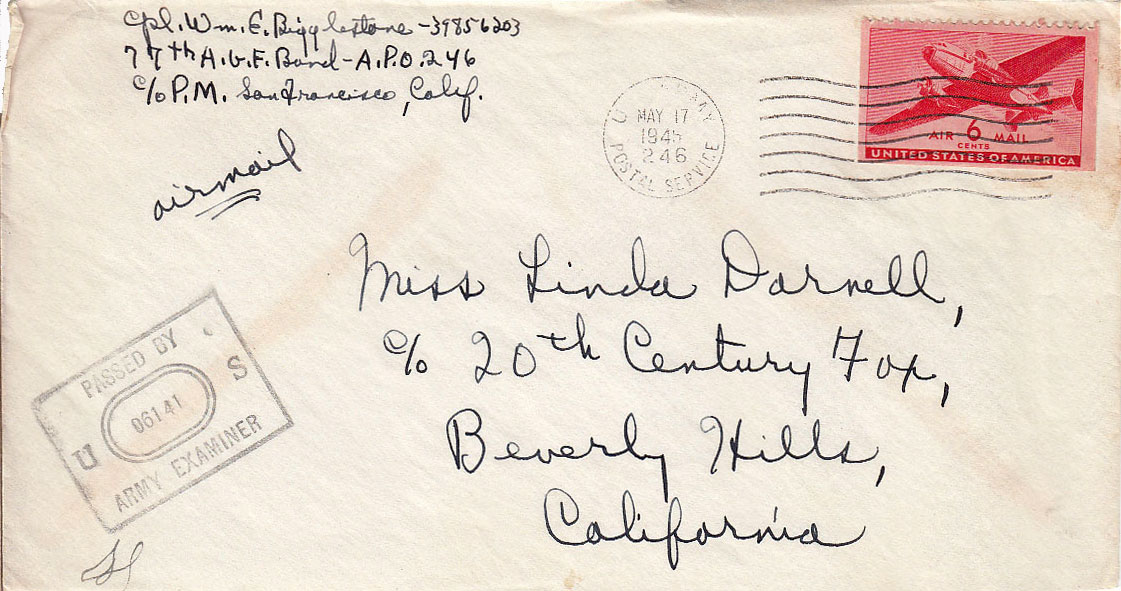 Cpl. Wm. E. Bigglestone - 39856203
77th A.G.F. Band - A.P.O. 246
c/o P.M. San Francisco, Calif.
airmail
U. ARMY
MAY 17
1945
246
POSTAL SERVICE
AIR 6 MAIL
CENTS
UNITED STATES OF AMERICA
Miss Linda Darnell,
c/o 20th Century Fox,
Beverly Hills,
California
PASSED BY
U 06141 S
ARMY EXAMINER